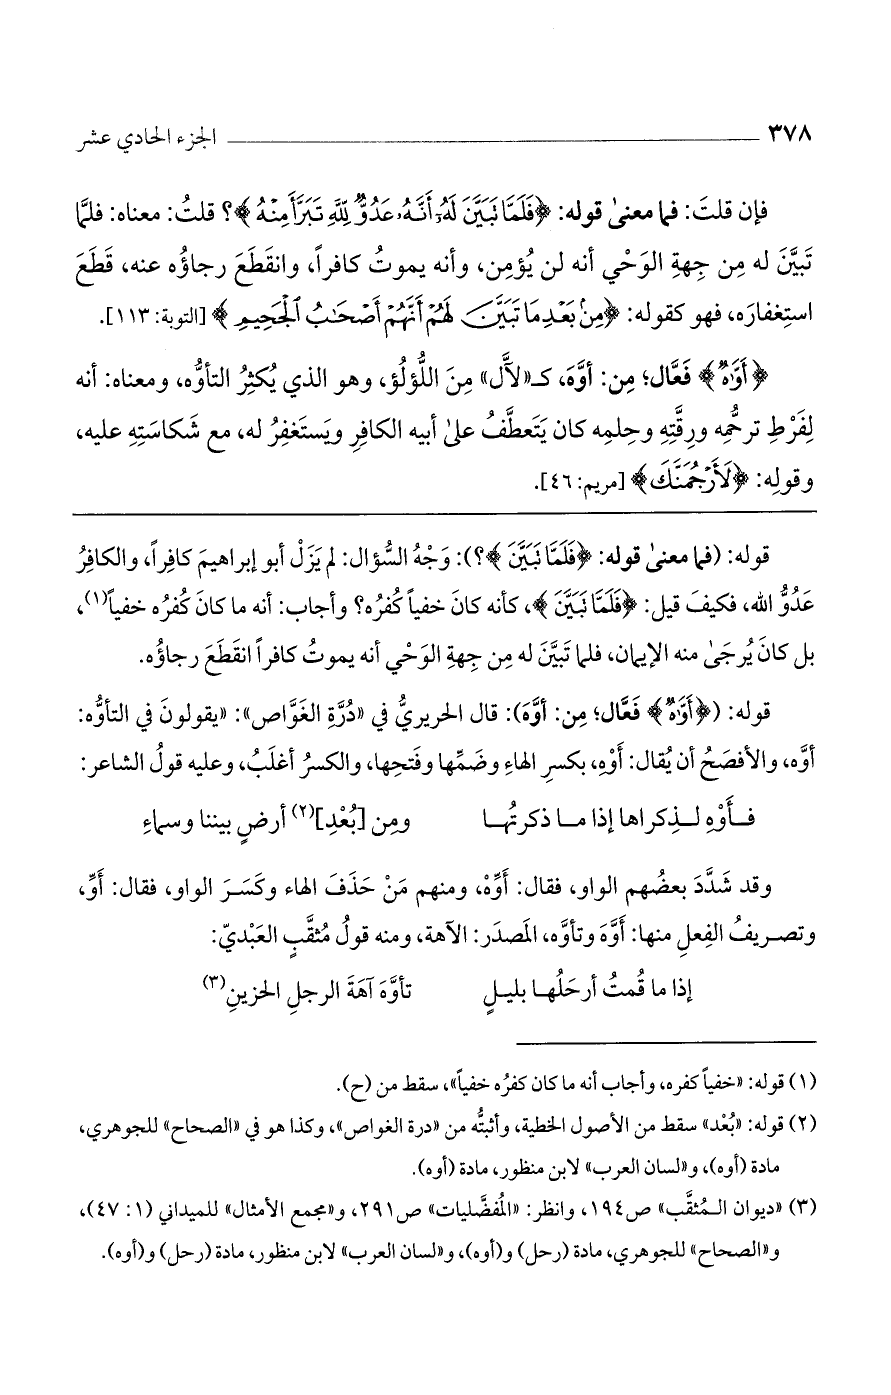 ٣٧٨ الجزء الحادي عشر
فإن قلتَ: فما معنىٰ قوله: ﴿فَلَمَّا تَبَيَّنَ لَهُۥٓ أَنَّهُۥ عَدُوٌّ لِّلَّهِ تَبَرَّأَ مِنْهُ﴾؟ قلتُ: معناه: فلمَّا
تَبيَّنَ له مِن جِهةِ الوَحْي أنه لن يُؤمِن، وأنه يموتُ كافراً، وانقَطَعَ رجاؤُه عنه، قَطَعَ
استِغفارَه، فهو كقوله: ﴿مِنۢ بَعْدِ مَا تَبَيَّنَ لَهُمْ أَنَّهُمْ أَصْحَٰبُ ٱلْجَحِيمِ﴾ [التوبة: ١١٣].
﴿أَوَّٰهٌ﴾ فَعَّال؛ مِن: أوَّهَ، كـ«لآَّل» مِنَ اللُّؤلُؤ، وهو الذي يُكثِرُ التأوُّه، ومعناه: أنه
لِفَرْطِ ترحُّمِه ورِقَّتِهِ وحِلمِه كان يَتَعطَّفُ علىٰ أبيه الكافِرِ ويَستَغفِرُ له، مع شَكاسَتِهِ عليه،
وقولِه: ﴿لَأَرْجُمَنَّكَ﴾ [مريم: ٤٦].
قوله: (فما معنىٰ قوله: ﴿فَلَمَّا تَبَيَّنَ﴾؟): وَجْهُ السُّؤال: لم يَزَلْ أبو إبراهيمَ كافِراً، والكافِرُ
عَدُوُّ الله، فكيفَ قيل: ﴿فَلَمَّا تَبَيَّنَ﴾، كأنه كانَ خفياً كُفرُه؟ وأجاب: أنه ما كانَ كُفرُه خفياً(١)،
بل كانَ يُرجَىٰ منه الإيمان، فلما تَبيَّنَ له مِن جِهةِ الوَحْي أنه يموتُ كافراً انقَطَعَ رجاؤُه.
قوله: (﴿أَوَّٰهٌ﴾ فَعَّال؛ مِن: أوَّهَ): قال الحريريُّ في «دُرَّةِ الغَوَّاص»: «يقولونَ في التأوُّه:
أوَّه، والأفصَحُ أن يُقال: أَوْهِ، بكسرِ الهاءِ وضَمِّها وفَتحِها، والكسرُ أغلَبُ، وعليه قولُ الشاعر:
فــأَوْهِ لــذِكراها إذا مــا ذكرتُهــا ومِن [بُعْدِ](٢) أرضٍ بيننا وسماءِ
وقد شَدَّدَ بعضُهم الواو، فقال: أَوِّهْ، ومنهم مَنْ حَذَفَ الهاء وكَسَـرَ الواو، فقال: أَوِّ،
وتصـريفُ الفِعلِ منها: أوَّهَ وتأوَّه، المَصدَر: الآهة، ومنه قولُ مُثقَّبٍ العَبْديّ:
إذا ما قُمتُ أرحَلُهــا بليــلٍ تأوَّهَ آهَةَ الرجلِ الحزينِ(٣)
(١) قوله: «خفياً كفره، وأجاب أنه ما كان كفرُه خفياً»، سقط من (ح).
(٢) قوله: «بُعْد» سقط من الأصول الخطية، وأثبتُّه من «درة الغواص»، وكذا هو في «الصحاح» للجوهري،
مادة (أوه)، و«لسان العرب» لابن منظور، مادة (أوه).
(٣) «ديوان الـمُثقَّب» ص١٩٤، وانظر: «المُفضَّليات» ص٢٩١، و«مجمع الأمثال» للميداني (١: ٤٧)،
و«الصحاح» للجوهري، مادة (رحل) و(أوه)، و«لسان العرب» لابن منظور، مادة (رحل) و(أوه).